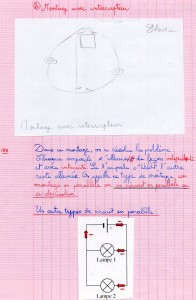 ⑥ Montage avec interrupteur
Montage avec interrupteur
Dans ce montage, on a résolu le problème.
Chaque ampoule s'allume de façon indépendante
et avec intensité. Si l'ampoule s'éteint l'autre
reste allumée. On appelle ce type de montage, un
montage en parallèle ou un circuit en parallèle ou
en dérivation.
Un autre type de circuit en parallèle :
Lampe 1
Lampe 2